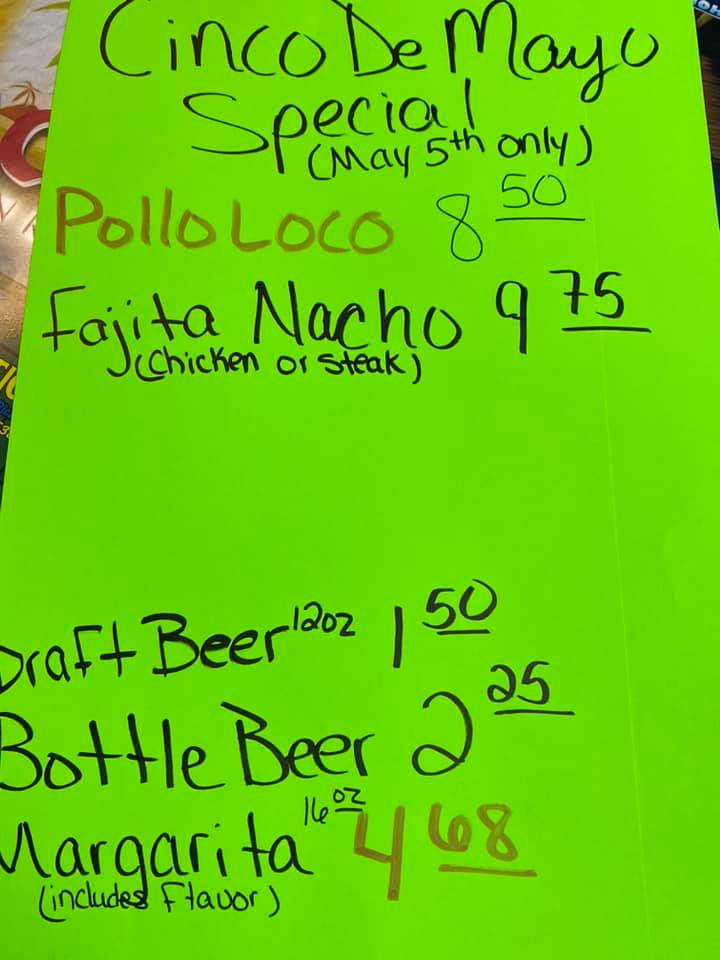 Cinco De Mayo
Special
(May 5th only)
Pollo Loco 8 50
Fajita Nacho 9 75
(Chicken or steak)
Draft Beer 12oz 1 50
Bottle Beer 2 25
Margarita 16 oz 4 68
(includes Flavor)